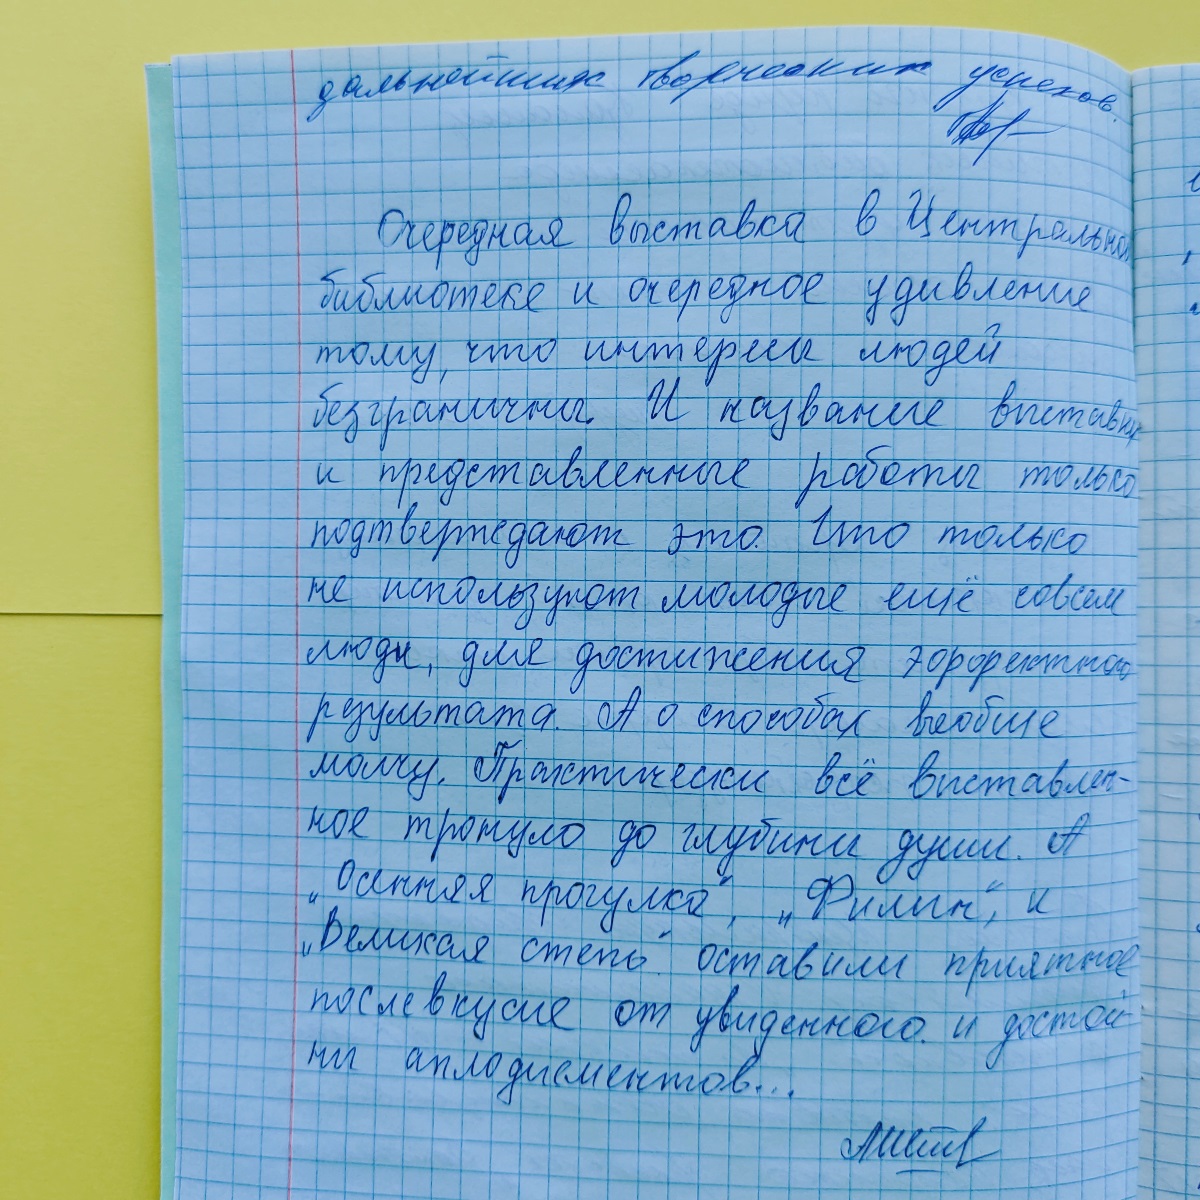 дальнейших творческих успехов.
Очередная выставка в Центральной
библиотеке и очередное удивление
тому, что интересы людей
безграничны. И название выставки
и представленные работы только
подтверждают это. Что только
не используют молодые ещё совсем
люди, для достижения эффектного
результата. А о способах вообще
молчу. Практически всё выставлен-
ное тронуло до глубины души. А
„Осенняя прогулка", „Филин", и
„Великая степь" оставили приятное
послевкусие от увиденного и достой
ны аплодисментов...